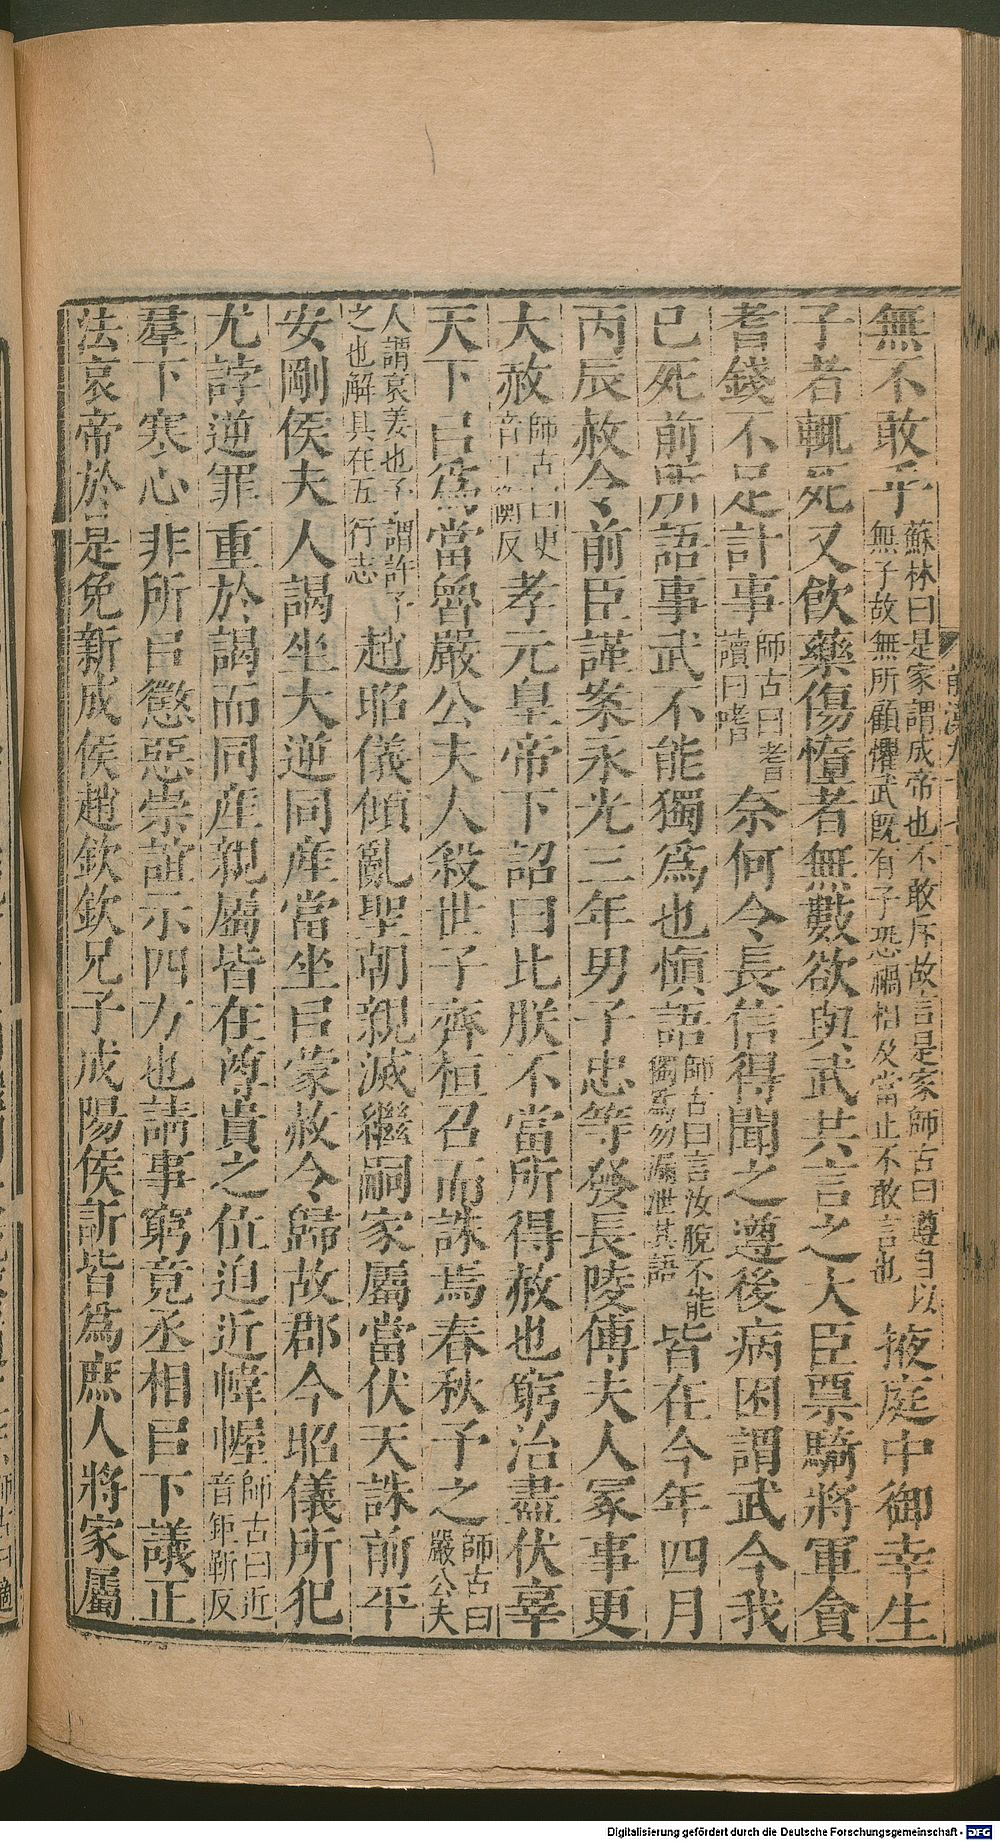 無不敢乎蘇林曰是家謂成帝也不敢斥故言是家師古曰遵自以無子故無所顧懼武既有子恐禍相及當止不敢言也掖庭中御幸生
子者輒死又飲藥傷憜者無數欲與武共言之大臣票騎將軍貪
耆錢不足計事師古曰耆讀曰嗜奈何令長信得聞之遵後病困謂武今我
已死前所語事武不能獨爲也愼語師古曰言汝脫不能獨爲勿漏泄其語皆在今年四月
丙辰赦令前臣謹案永光三年男子忠等發長陵傅夫人冢事更
大赦師古曰更音工衡反孝元皇帝下詔曰此朕不當所得赦也窮治盡伏辜
天下㠯爲當魯嚴公夫人殺世子齊桓召而誅焉春秋予之師古曰嚴公夫
人謂哀姜也予謂許予之也解具在五行志趙昭儀傾亂聖朝親滅繼嗣家屬當伏天誅前平
安剛侯夫人謁坐大逆同産當坐㠯蒙赦令歸故郡今昭儀所犯
尤誖逆罪重於謁而同産親屬皆在尊貴之位迫近幃幄師古曰近音鉅靳反
羣下寒心非所㠯懲惡崇誼示四方也請事窮竟丞相㠯下議正
法哀帝於是免新成侯趙欽欽兄子成陽侯訢皆爲庶人將家屬
前漢九十七
師古曰適
Digitalisierung gefördert durch die Deutsche Forschungsgemeinschaft - DFG